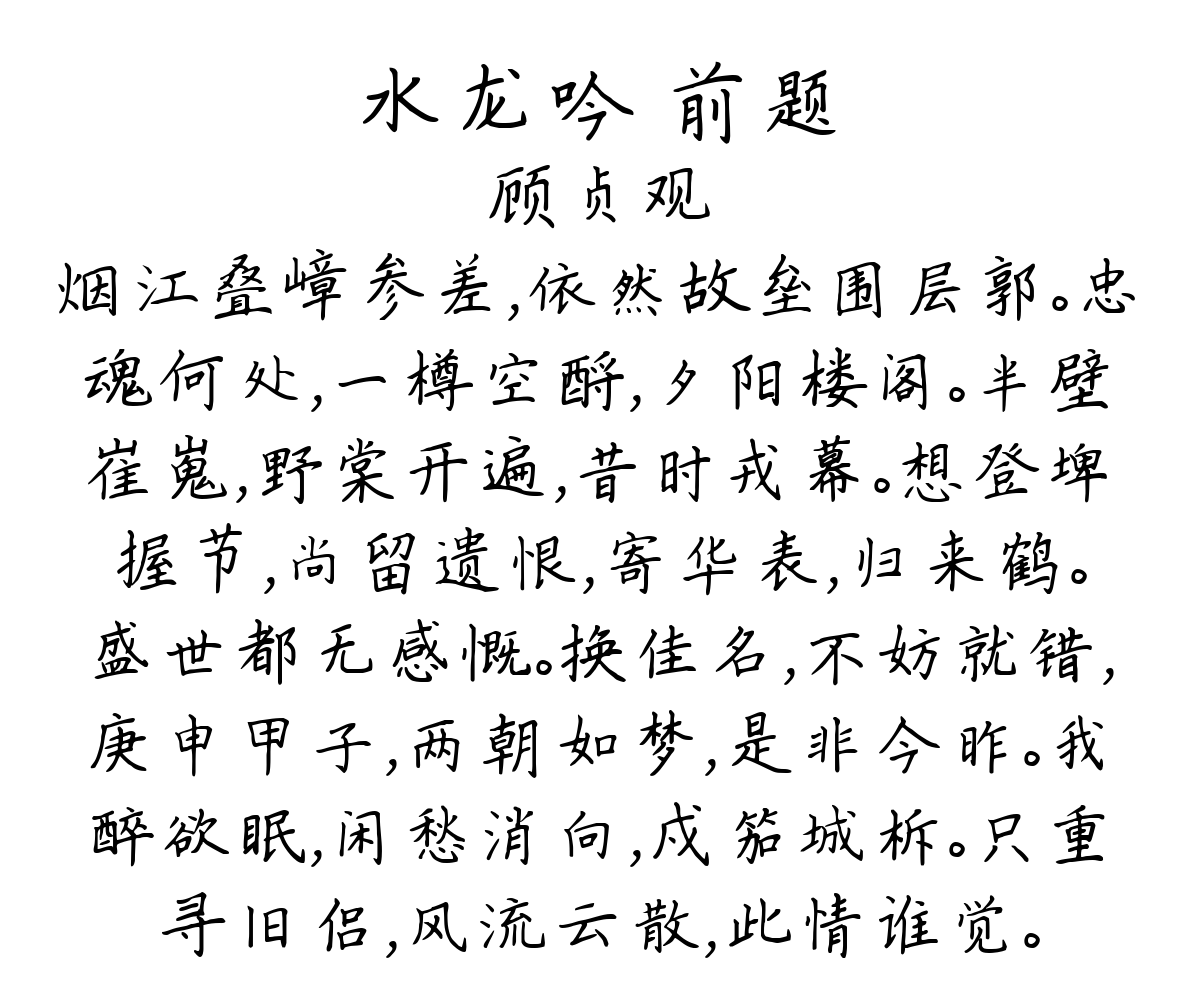 水龙吟 前题
顾贞观
烟江叠嶂参差,依然故垒围层郭。忠
魂何处,一樽空酹,夕阳楼阁。半壁
崔嵬,野棠开遍,昔时戎幕。想登埤
握节,尚留遗恨,寄华表,归来鹤。
盛世都无感慨。换佳名,不妨就错,
庚申甲子,两朝如梦,是非今昨。我
醉欲眠,闲愁消向,戍笳城柝。只重
寻旧侣,风流云散,此情谁觉。